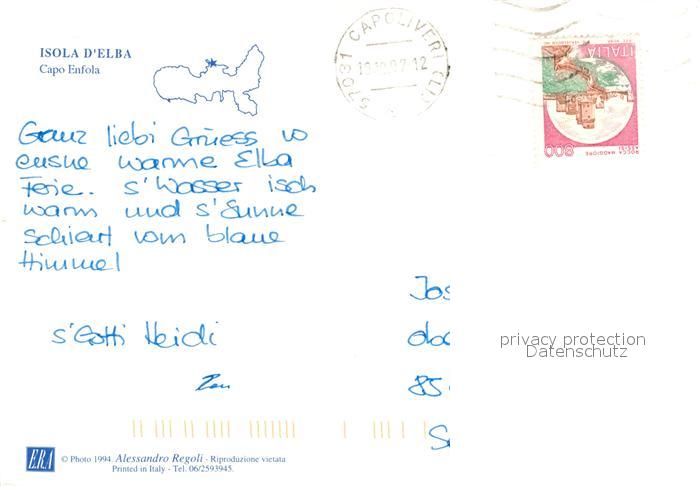 ISOLA D'ELBA
Capo Enfola
57031 CAPOLIVERI (LI)
ITALIA
ROCCA MAGGIORE
800
Ganz liebi Grüess vo
eusne warme Elba
Ferie. s'Wasser isch
warm und s'Sunne
schient vom blaue
Himmel
s'Gotti Heidi
Jos
obe
85
S
privacy protection
Datenschutz
ERA
© Photo 1994. Alessandro Regoli - Riproduzione vietata
Printed in Italy - Tel. 06/2593945.